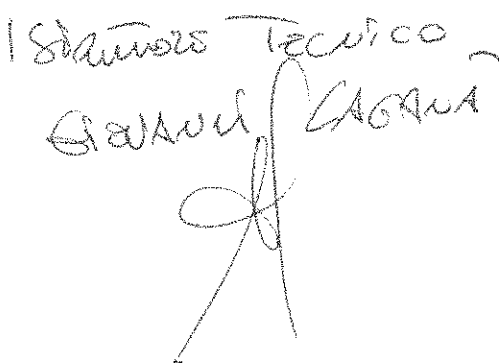 Istruttore Tecnico
Giovanni Laganà